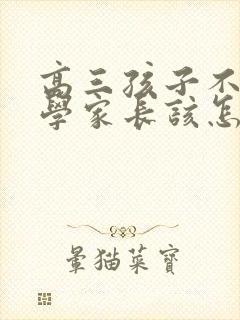 高三孩子不
學家長該怎
暈猫菜寶